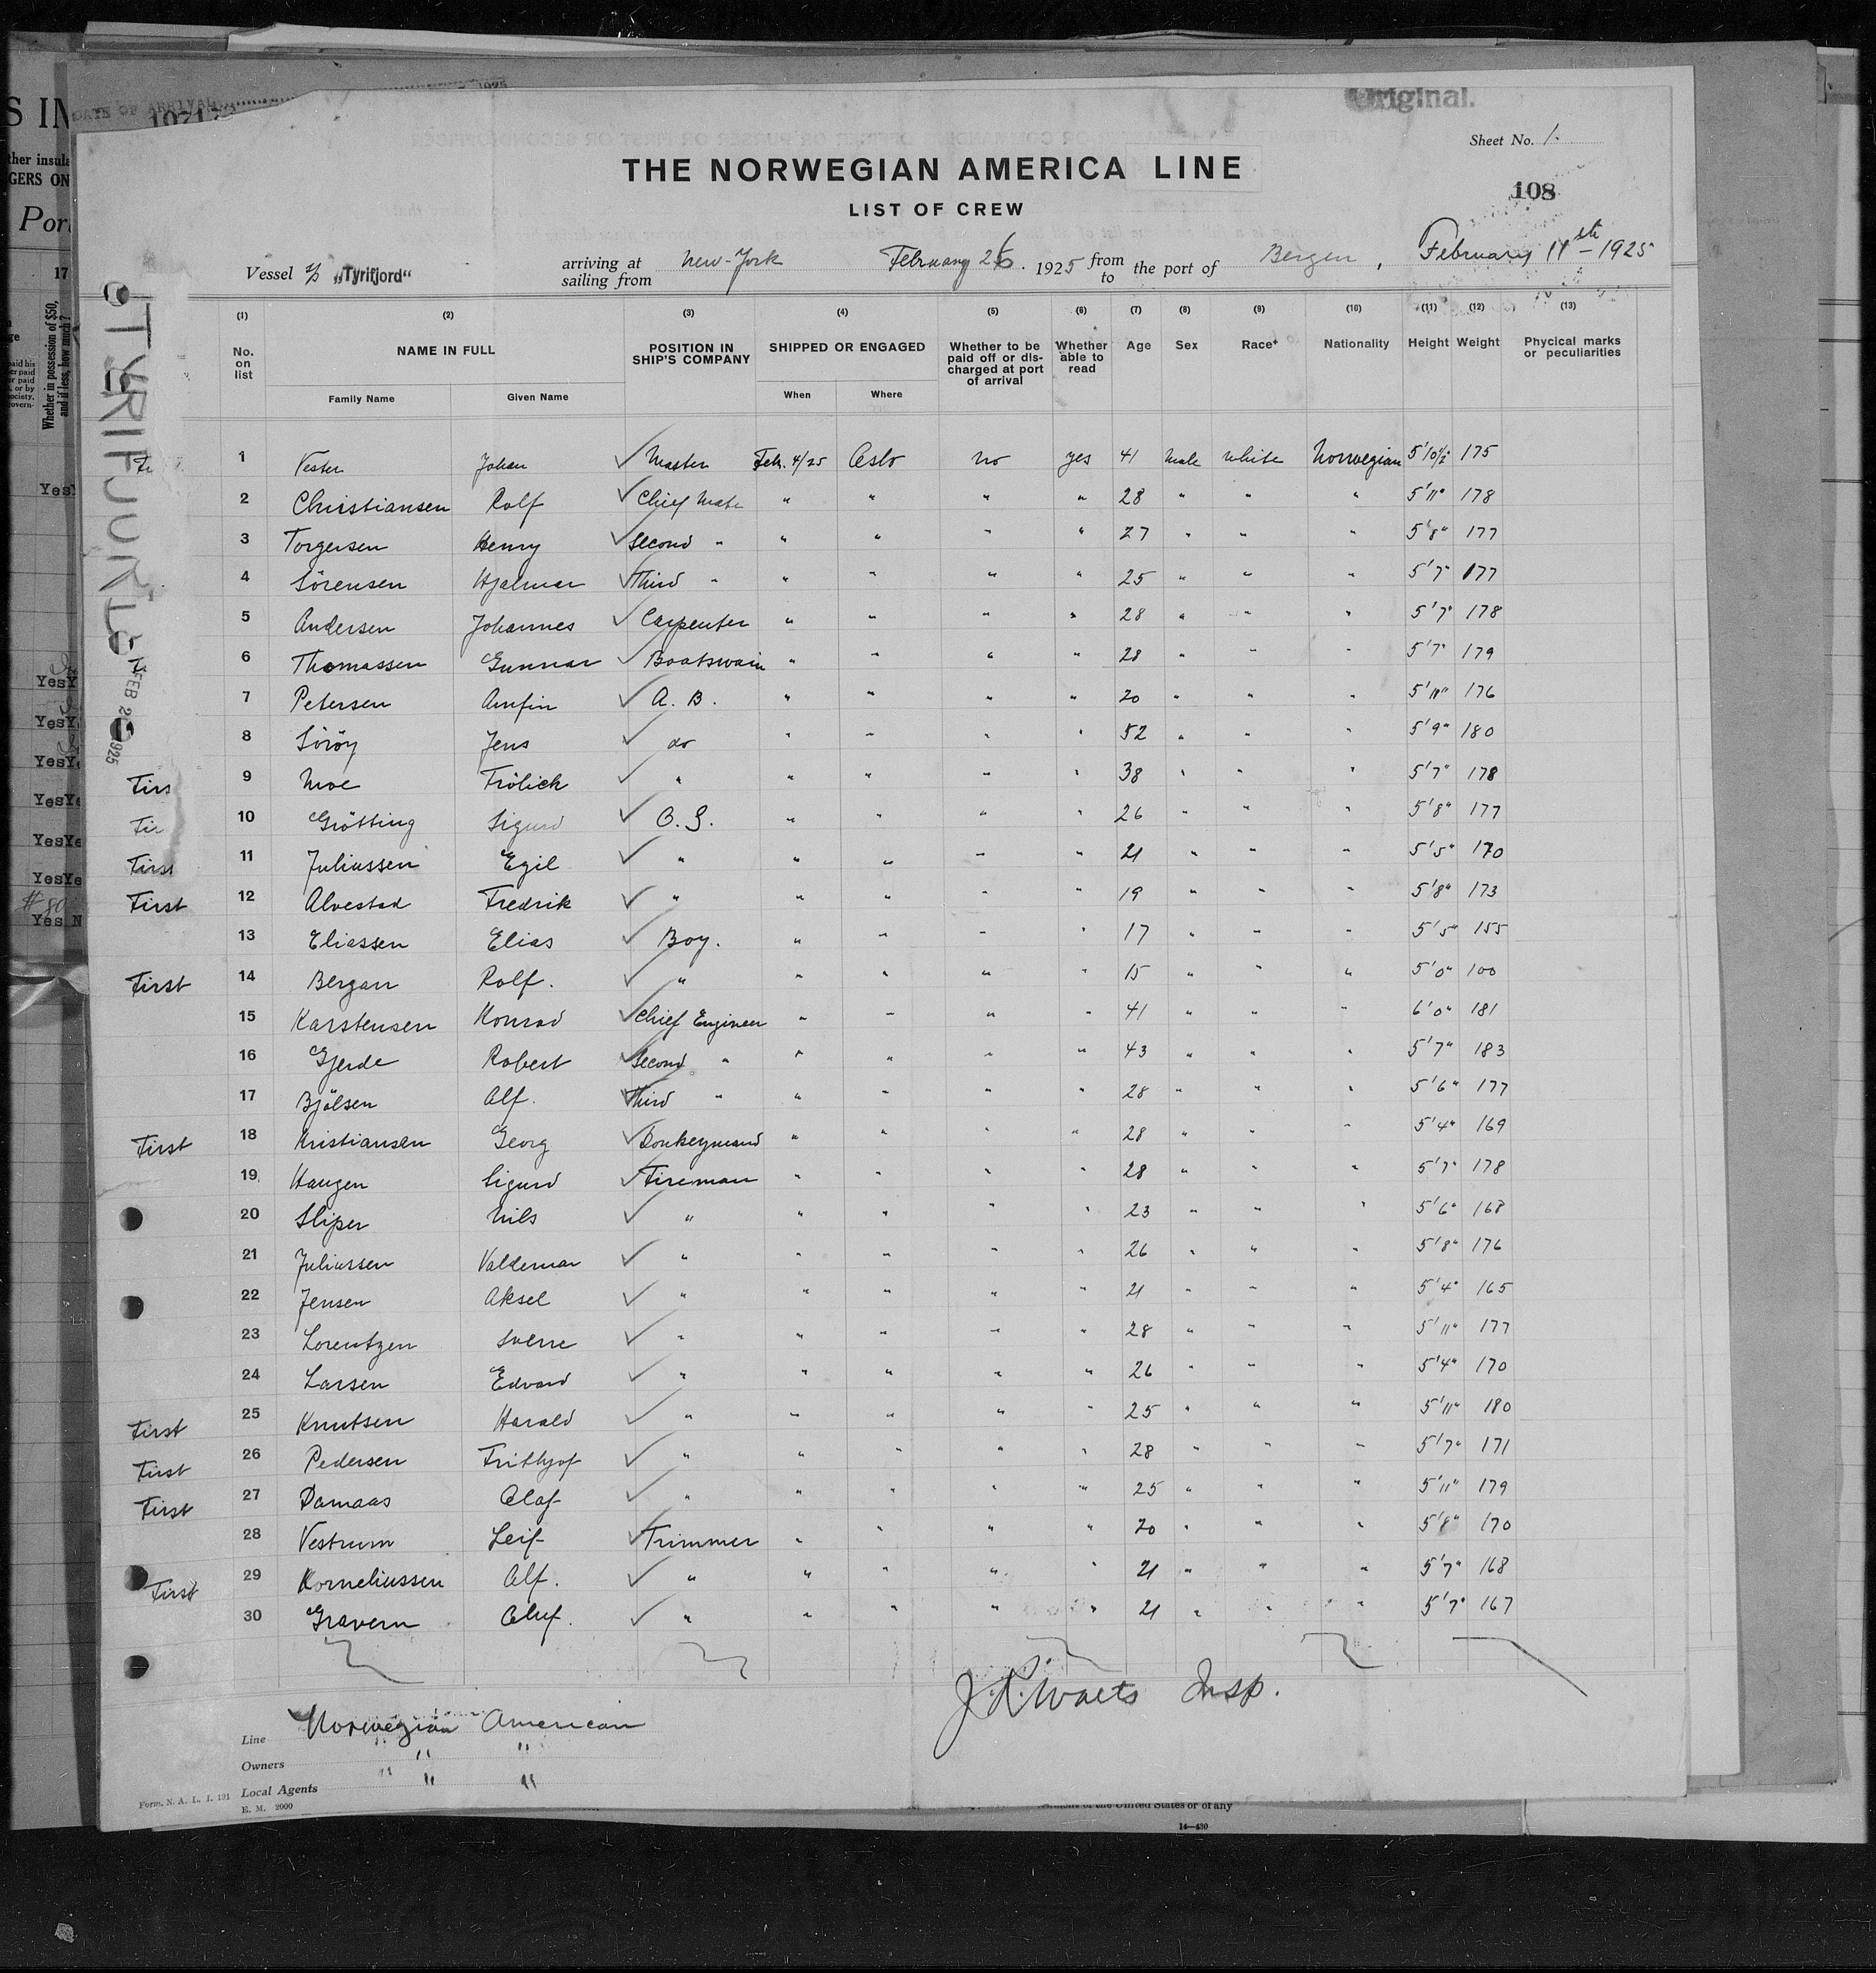 Original.
Sheet No. 1.
THE NORWEGIAN AMERICA LINE
108
LIST OF CREW
Vessel s/s "Tyrifjord" arriving at sailing from New-York February 26. 1925 from to the port of Bergen, February 11th - 1925
(1) (2) (3) (4) (5) (6) (7) (8) (9) (10) (11) (12) (13)
No. on list NAME IN FULL POSITION IN SHIP'S COMPANY SHIPPED OR ENGAGED Whether to be paid off or discharged at port of arrival Whether able to read Age Sex Race Nationality Height Weight Phycical marks or peculiarities
Family Name Given Name When Where
1 Vester Johan Master Feb. 4/25 Oslo no yes 41 male white Norwegian 5'10½" 175
2 Christiansen Rolf Chief Mate " " " " 28 " " " 5'11" 178
3 Torgersen Henry Second " " " " " 27 " " " 5'8" 177
4 Sörensen Hjalmar Third " " " " " 25 " " " 5'7" 177
5 Andersen Johannes Carpenter " " " " 28 " " " 5'7" 178
6 Thomassen Gunnar Boatswain " " " " 28 " " " 5'7" 179
7 Petersen Arnfin A. B. " " " " 20 " " " 5'11" 176
8 Söröy Jens do " " " " 52 " " " 5'9" 180
Firs 9 Moe Frölich " " " " " 38 " " " 5'7" 178
Fir 10 Grötting Sigurd O. S. " " " " 26 " " " 5'8" 177
First 11 Juliussen Egil " " " " " 21 " " " 5'5" 170
First 12 Alvestad Fredrik " " " " " 19 " " " 5'8" 173
13 Eliassen Elias Boy. " " " " 17 " " " 5'5" 155
First 14 Bergan Rolf. " " " " " 15 " " " 5'0" 100
15 Karstensen Konrad Chief Engineer " " " " 41 " " " 6'0" 181
16 Gjerde Robert Second " " " " " 43 " " " 5'7" 183
17 Bjölsen Alf. Third " " " " " 28 " " " 5'6" 177
First 18 Kristiansen Georg Donkeymand " " " " 28 " " " 5'4" 169
19 Haugen Sigurd Fireman " " " " 28 " " " 5'7" 178
20 Sliper Nils " " " " " 23 " " " 5'6" 168
21 Juliussen Valdemar " " " " " 26 " " " 5'8" 176
22 Jensen Aksel " " " " " 21 " " " 5'4" 165
23 Lorentzen Sverre " " " " " 28 " " " 5'11" 177
24 Larsen Edvard " " " " " 26 " " " 5'4" 170
First 25 Knutsen Harald " " " " " 25 " " " 5'11" 180
First 26 Pedersen Frithjof " " " " " 28 " " " 5'7" 171
First 27 Damaas Olaf " " " " " 25 " " " 5'11" 179
28 Vestrum Leif Trimmer " " " " 20 " " " 5'8" 170
First 29 Korneliussen Alf. " " " " " 21 " " " 5'7" 168
30 Gravern Oluf. " " " " " 21 " " " 5'7" 167
Insp.
Line Norwegian American
Owners " " "
Local Agents " " "
Form. N. A. L. I. 191
E. M. 2000
14—430